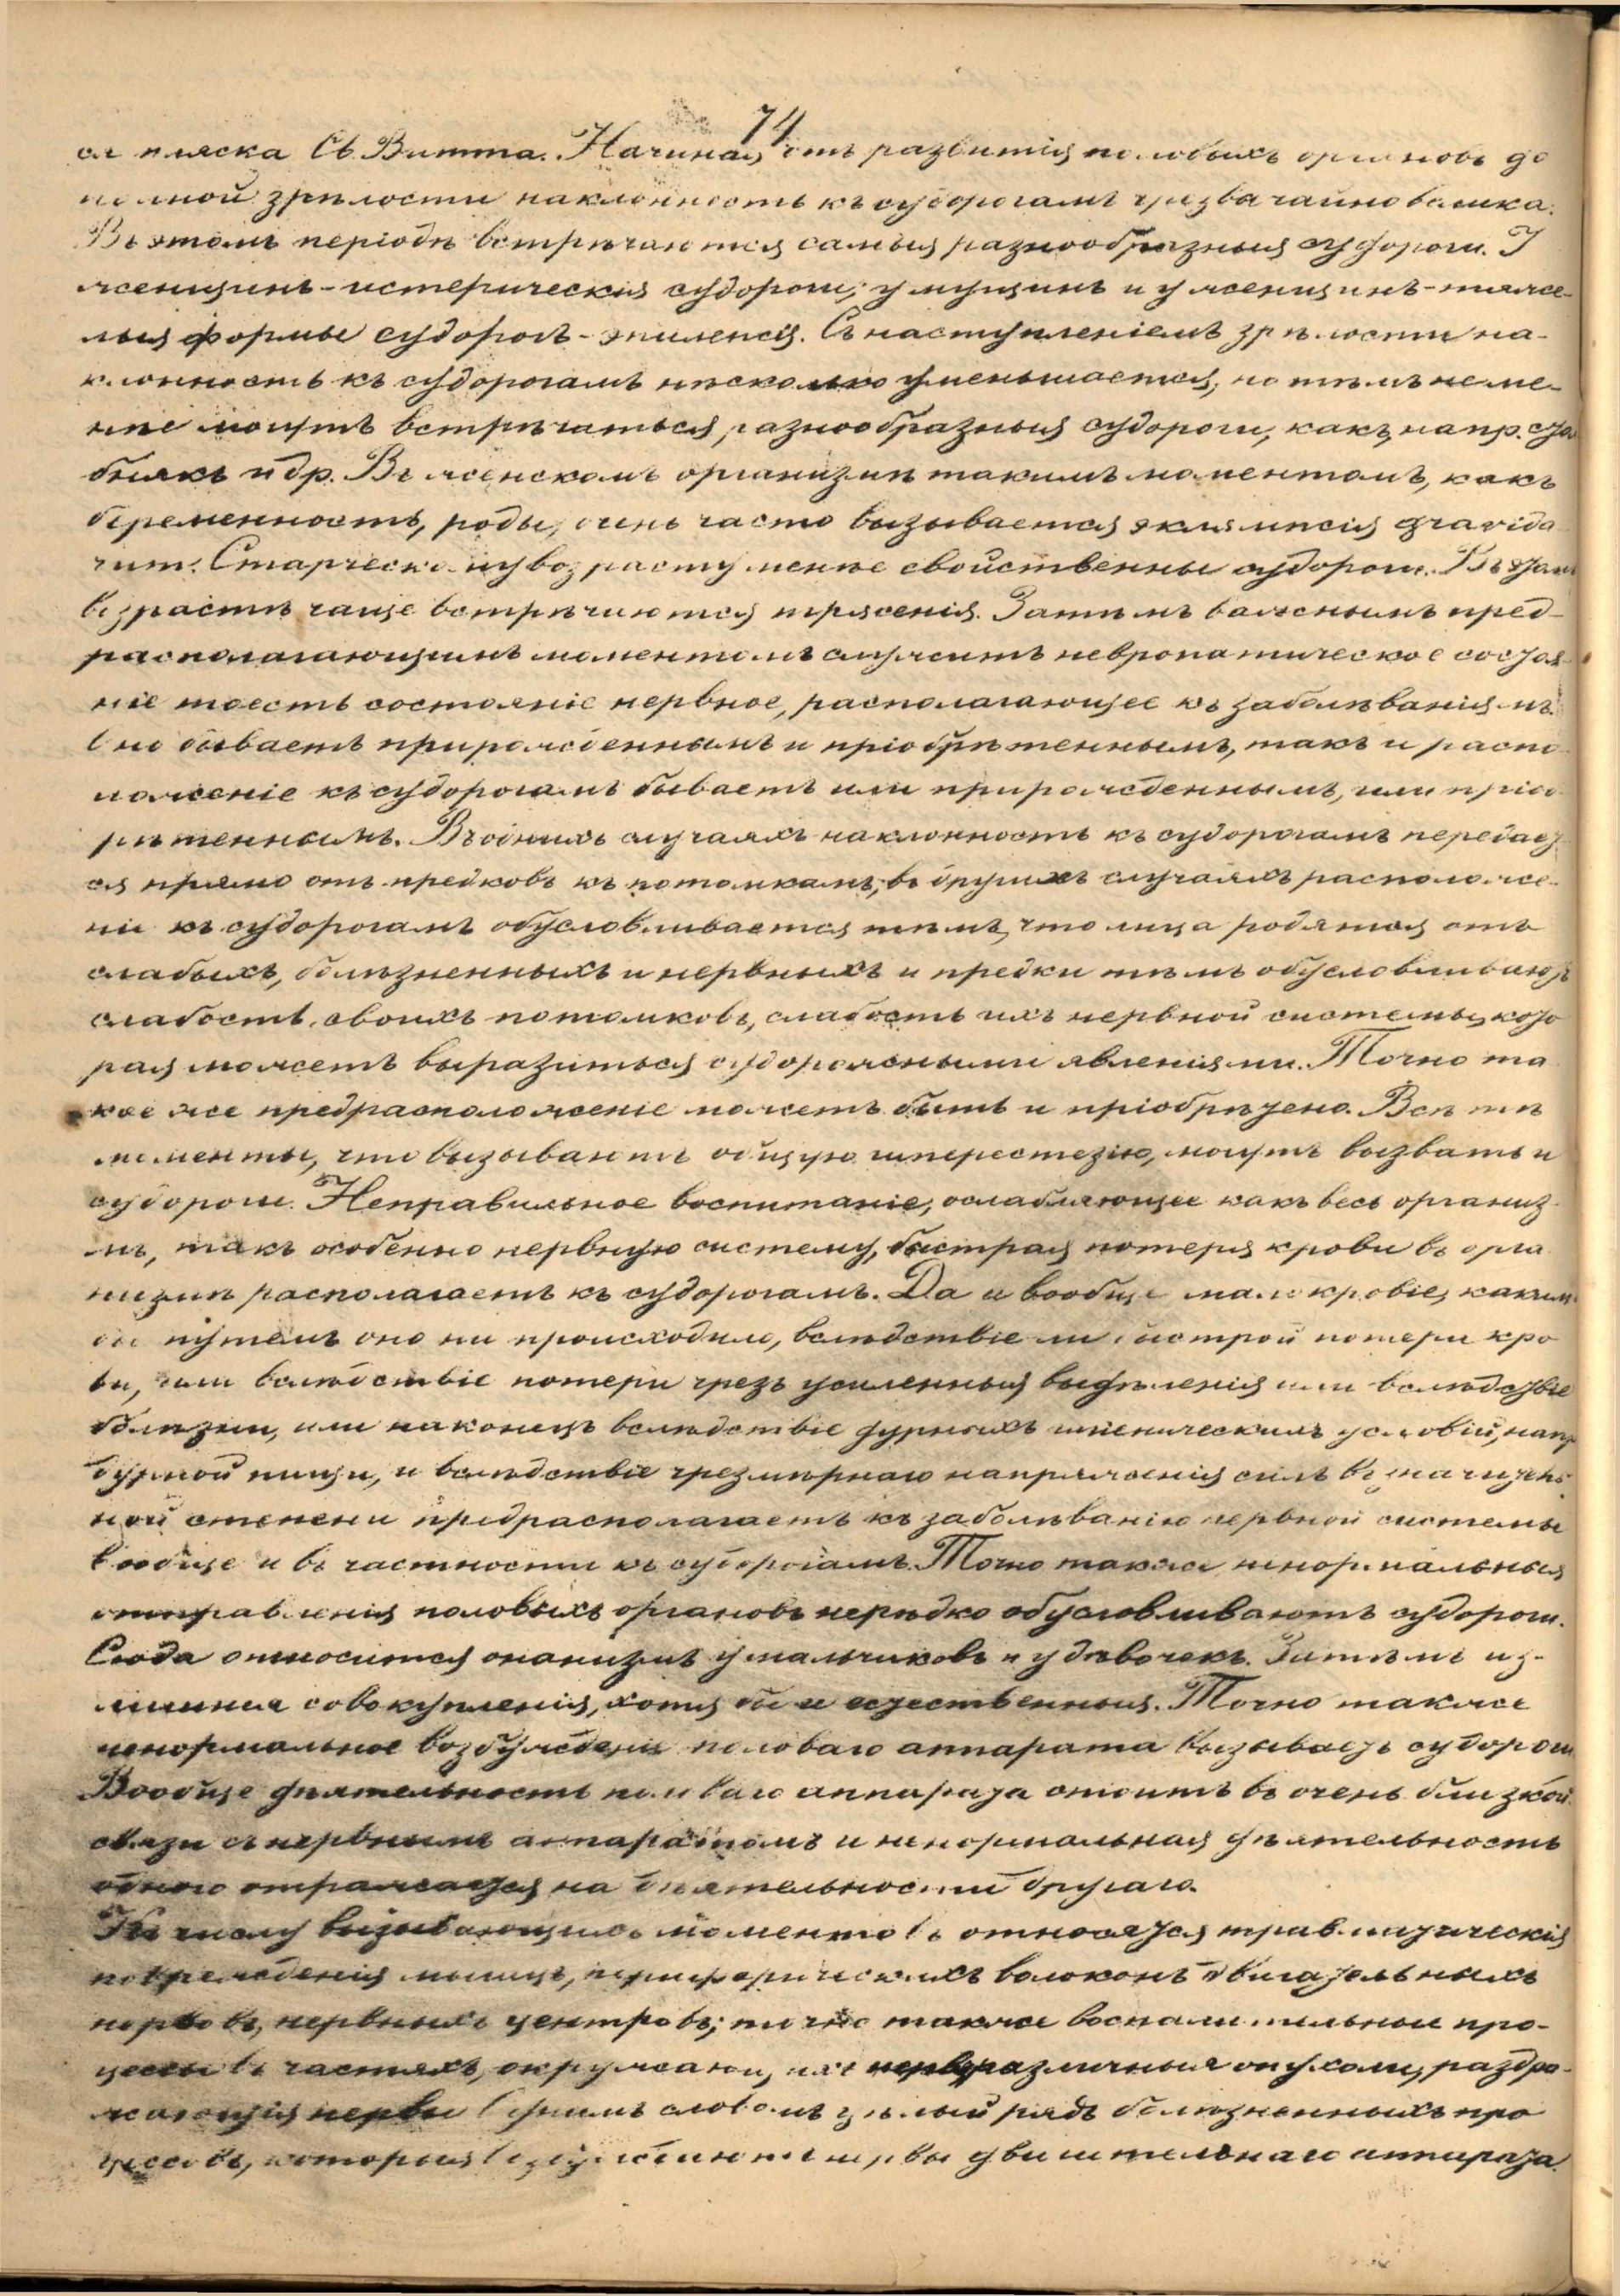 74
ся пляска Св. Витта. Начиная отъ развитія половыхъ органовъ до
полной зрѣлости наклонность къ судорогамъ чрезвычайно велика.
Въ этомъ періодѣ встрѣчаются самыя разнообразныя судороги. У
женщинъ - истерическія судороги; у мущинъ и у женщинъ - тяже-
лыя формы судорогъ - эпилепсія. Съ наступленіемъ зрѣлости на-
клонность къ судорогамъ нѣсколько уменьшается, но тѣмъ не ме-
нѣе могутъ встрѣчаться разнообразныя судороги, какъ напр. стол
бнякъ и др. Въ женскомъ организмѣ такимъ моментомъ, какъ
беременность, роды, очень часто вызывается эклямпсія gravida
rum. Старческому возрасту менѣе свойственны судороги. Въ этом
возрастѣ чаще встрѣчаются трясенія. Затѣмъ важнымъ пред-
располагающимъ моментомъ служитъ невропатическое состоя-
ніе тоесть состояніе нервное, располагающее къ заболѣваніямъ.
Оно бываетъ прирожденнымъ и пріобрѣтеннымъ, такъ и распо
ложеніе къ судорогамъ бываетъ или прирожденнымъ, или пріоб
рѣтеннымъ. Въ однихъ случаяхъ наклонность къ судорогамъ передает
ся прямо отъ предковъ къ потомкамъ, въ другихъ случаяхъ расположе-
ніе къ судорогамъ обусловливается тѣмъ, что лица родятся отъ
слабыхъ, болѣзненныхъ и нервныхъ и предки тѣмъ обусловливаютъ
слабость своихъ потомковъ, слабость ихъ нервной системы, кото
рая можетъ выразиться судорожными явленіями. Точно та
кое же предрасположеніе можетъ быть и пріобрѣтено. Всѣ тѣ
моменты, что вызываютъ общую гиперестезію, могутъ вызвать и
судороги. Неправильное воспитаніе, ослабляющее какъ весь организ-
мъ, такъ особенно нервную систему, быстрая потеря крови въ орга
низмѣ располагаетъ къ судорогамъ. Да и вообще малокровіе, какимъ
бы путемъ оно ни происходило, вслѣдствіе ли быстрой потери кро
ви, или вслѣдствіе потери чрезъ усиленныя выдѣленія или вслѣдствіе
болѣзни, или наконецъ вслѣдствіе дурныхъ гигіеническихъ условій, напр
дурной пищи, и вслѣдствіе чрезмѣрнаго напряженія силъ въ значитель
ной степени предрасполагаетъ къ заболѣванію нервной системы
вообще и въ частности къ судорогамъ. Точно также ненормальныя
отправленія половыхъ органовъ нерѣдко обусловливаютъ судороги.
Сюда относится онанизмъ у мальчиковъ и у дѣвочекъ. Затѣмъ из-
лишнія совокупленія, хотя бы и естественныя. Точно также
ненормальное возбужденіе половаго аппарата вызываетъ судороги
Вообще дѣятельность половаго аппарата стоитъ въ очень близкой
связи съ нервнымъ аппаратомъ и ненормальная дѣятельность
одного отражается на дѣятельности другаго.
Къ числу вызывающихъ моментовъ относятся травматическія
поврежденія мышцъ, периферическихъ волоконъ двигательныхъ
нервовъ, нервныхъ центровъ; точно также воспалительные про-
цессы въ частяхъ, окружающихъ нервы различныя опухоли, раздра-
жающія нервы Однимъ словомъ цѣлый рядъ болѣзненныхъ про
цессовъ, которыя нервы двигательнаго аппарата.